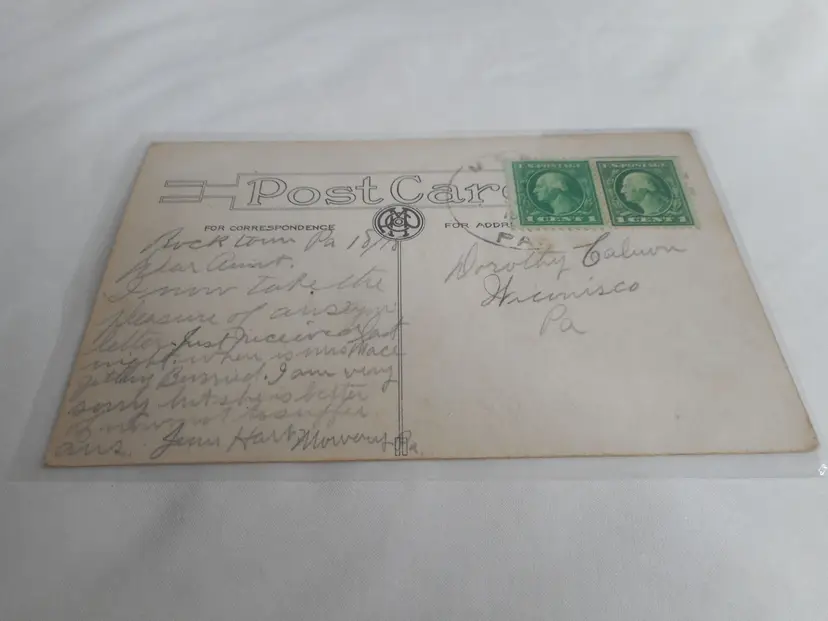 Post Card
FOR CORRESPONDENCE
FOR ADDR
U.S. POSTAGE
1 CENT 1
U.S. POSTAGE
1 CENT 1
PA.
Rock town Pa 18/18
Dear Aunt.
I now take the
pleasure of
letter Just received last
night. when is miss Mace
getting Burried. I am very
sorry but she is better
of not to suffer
ans. Hart Mowery Pa.
Dorothy
Wiconisco
Pa